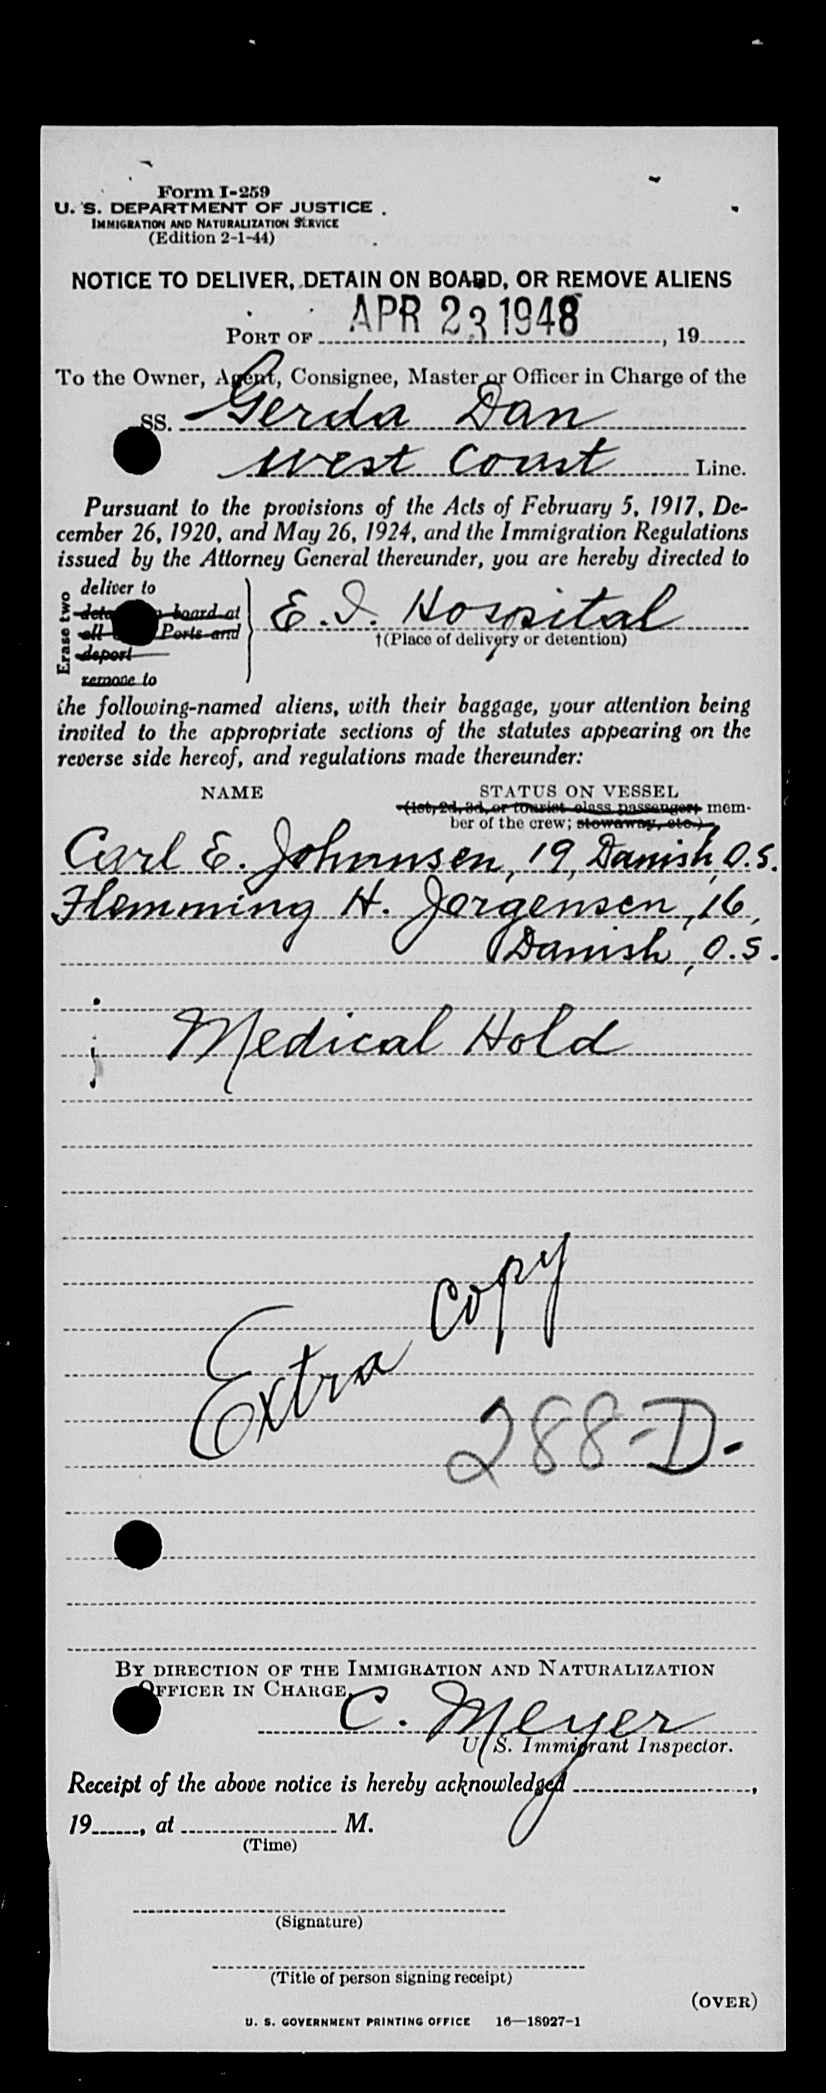 Form I-259
U. S. DEPARTMENT OF JUSTICE
IMMIGRATION AND NATURALIZATION SERVICE
(Edition 2-1-44)
NOTICE TO DELIVER, DETAIN ON BOARD, OR REMOVE ALIENS
PORT OF APR 23 1948, 19
To the Owner, Agent, Consignee, Master or Officer in Charge of the
SS. Gerda Dan
West Coast Line.
Pursuant to the provisions of the Acts of February 5, 1917, De-
cember 26, 1920, and May 26, 1924, and the Immigration Regulations
issued by the Attorney General thereunder, you are hereby directed to
Erase two
deliver to
board at
all Ports and
deport
remove to
E. I. Hospital
†(Place of delivery or detention)
the following-named aliens, with their baggage, your attention being
invited to the appropriate sections of the statutes appearing on the
reverse side hereof, and regulations made thereunder:
NAME STATUS ON VESSEL
(1st, 2d, 3d, or tourist class passenger; mem-
ber of the crew; stowaway, etc.)
Carl E. Johnnsen, 19, Danish, O.S.
Flemming H. Jorgensen, 16,
Danish, O.S.
Medical Hold
Extra Copy
288-D-
BY DIRECTION OF THE IMMIGRATION AND NATURALIZATION
OFFICER IN CHARGE.
C. Meyer
U. S. Immigrant Inspector.
Receipt of the above notice is hereby acknowledged ,
19 , at M.
(Time)
(Signature)
(Title of person signing receipt)
(OVER)
U. S. GOVERNMENT PRINTING OFFICE 16—18927-1